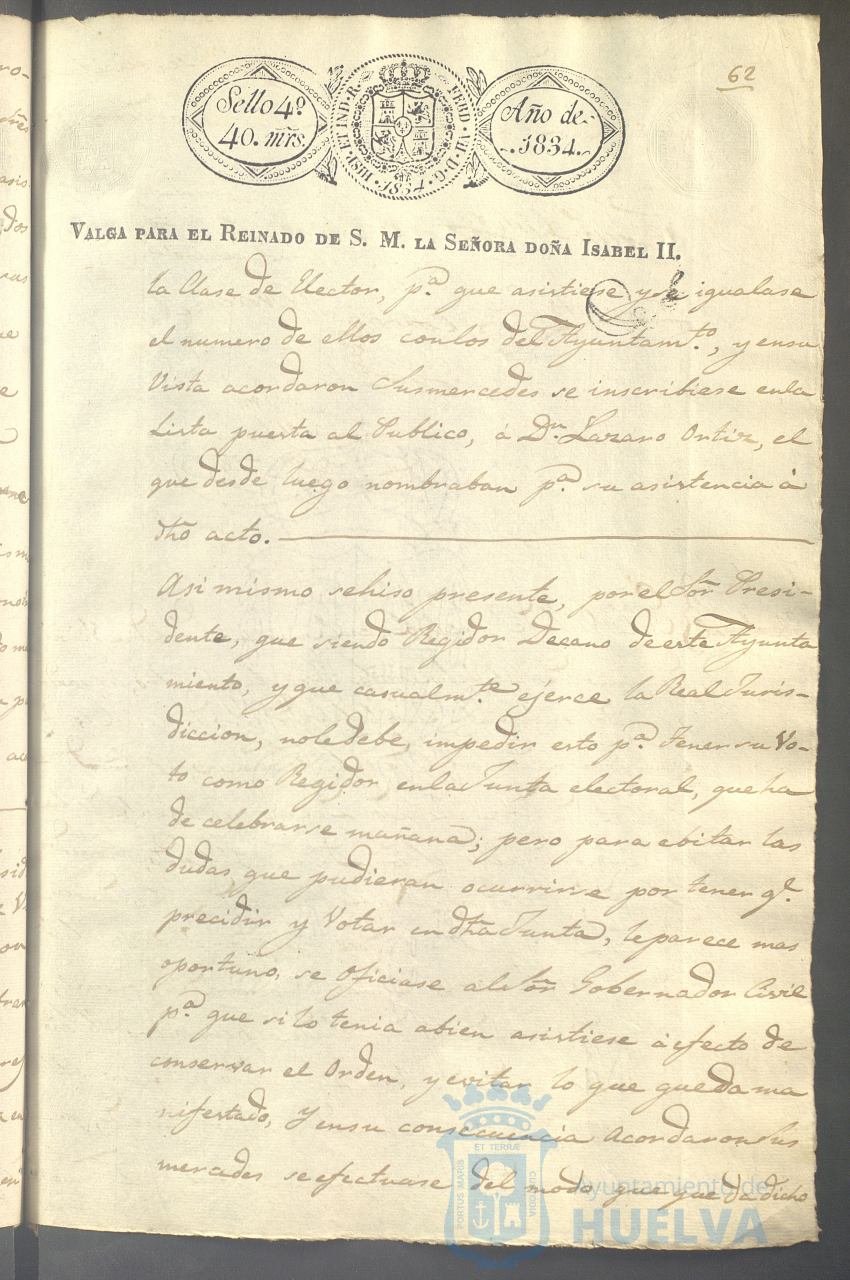 62
Sello 4º
40. mrs.
HISP. ET IND. R.
FERD. VII. D. G.
1834
Año de
1834.
VALGA PARA EL REINADO DE S. M. LA SEÑORA DOÑA ISABEL II.
la Clase de Elector, pª que asistiese y se igualase
el numero de ellos con los del Ayuntamto, y en su
Vista acordaron Susmercedes se inscribiese en la
Lista puesta al Publico, á Dn Lazaro Ortiz, el
que desde luego nombraban pª su asistencia á
dho acto.
Asi mismo se hiso presente, por el Sor Presi-
dente, que siendo Regidor Decano de este Ayunta
miento, y que casualmte ejerce la Real Juris-
diccion, nole debe, impedir esto pª tener su Vo-
to como Regidor en la Junta electoral, que ha
de celebrarse mañana; pero para ebitar las
dudas que pudieran ocurrirse por tener qe
precidir y Votar en dha Junta, le parece mas
oportuno, se Oficiase al Sor Gobernador Civil
pª que si lo tenia abien asistiese á efecto de
conservar el Orden, y evitar lo que queda ma
nifestado, Y en su consecuencia acordaron Sus
mercedes se efectuase del modo que queda dicho
ET TERRÆ
PORTUS MARIS
CUSTODIA
Ayuntamiento de
HUELVA